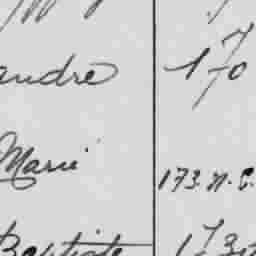 andre 170
Marie 173. N. C.
Baptiste 173